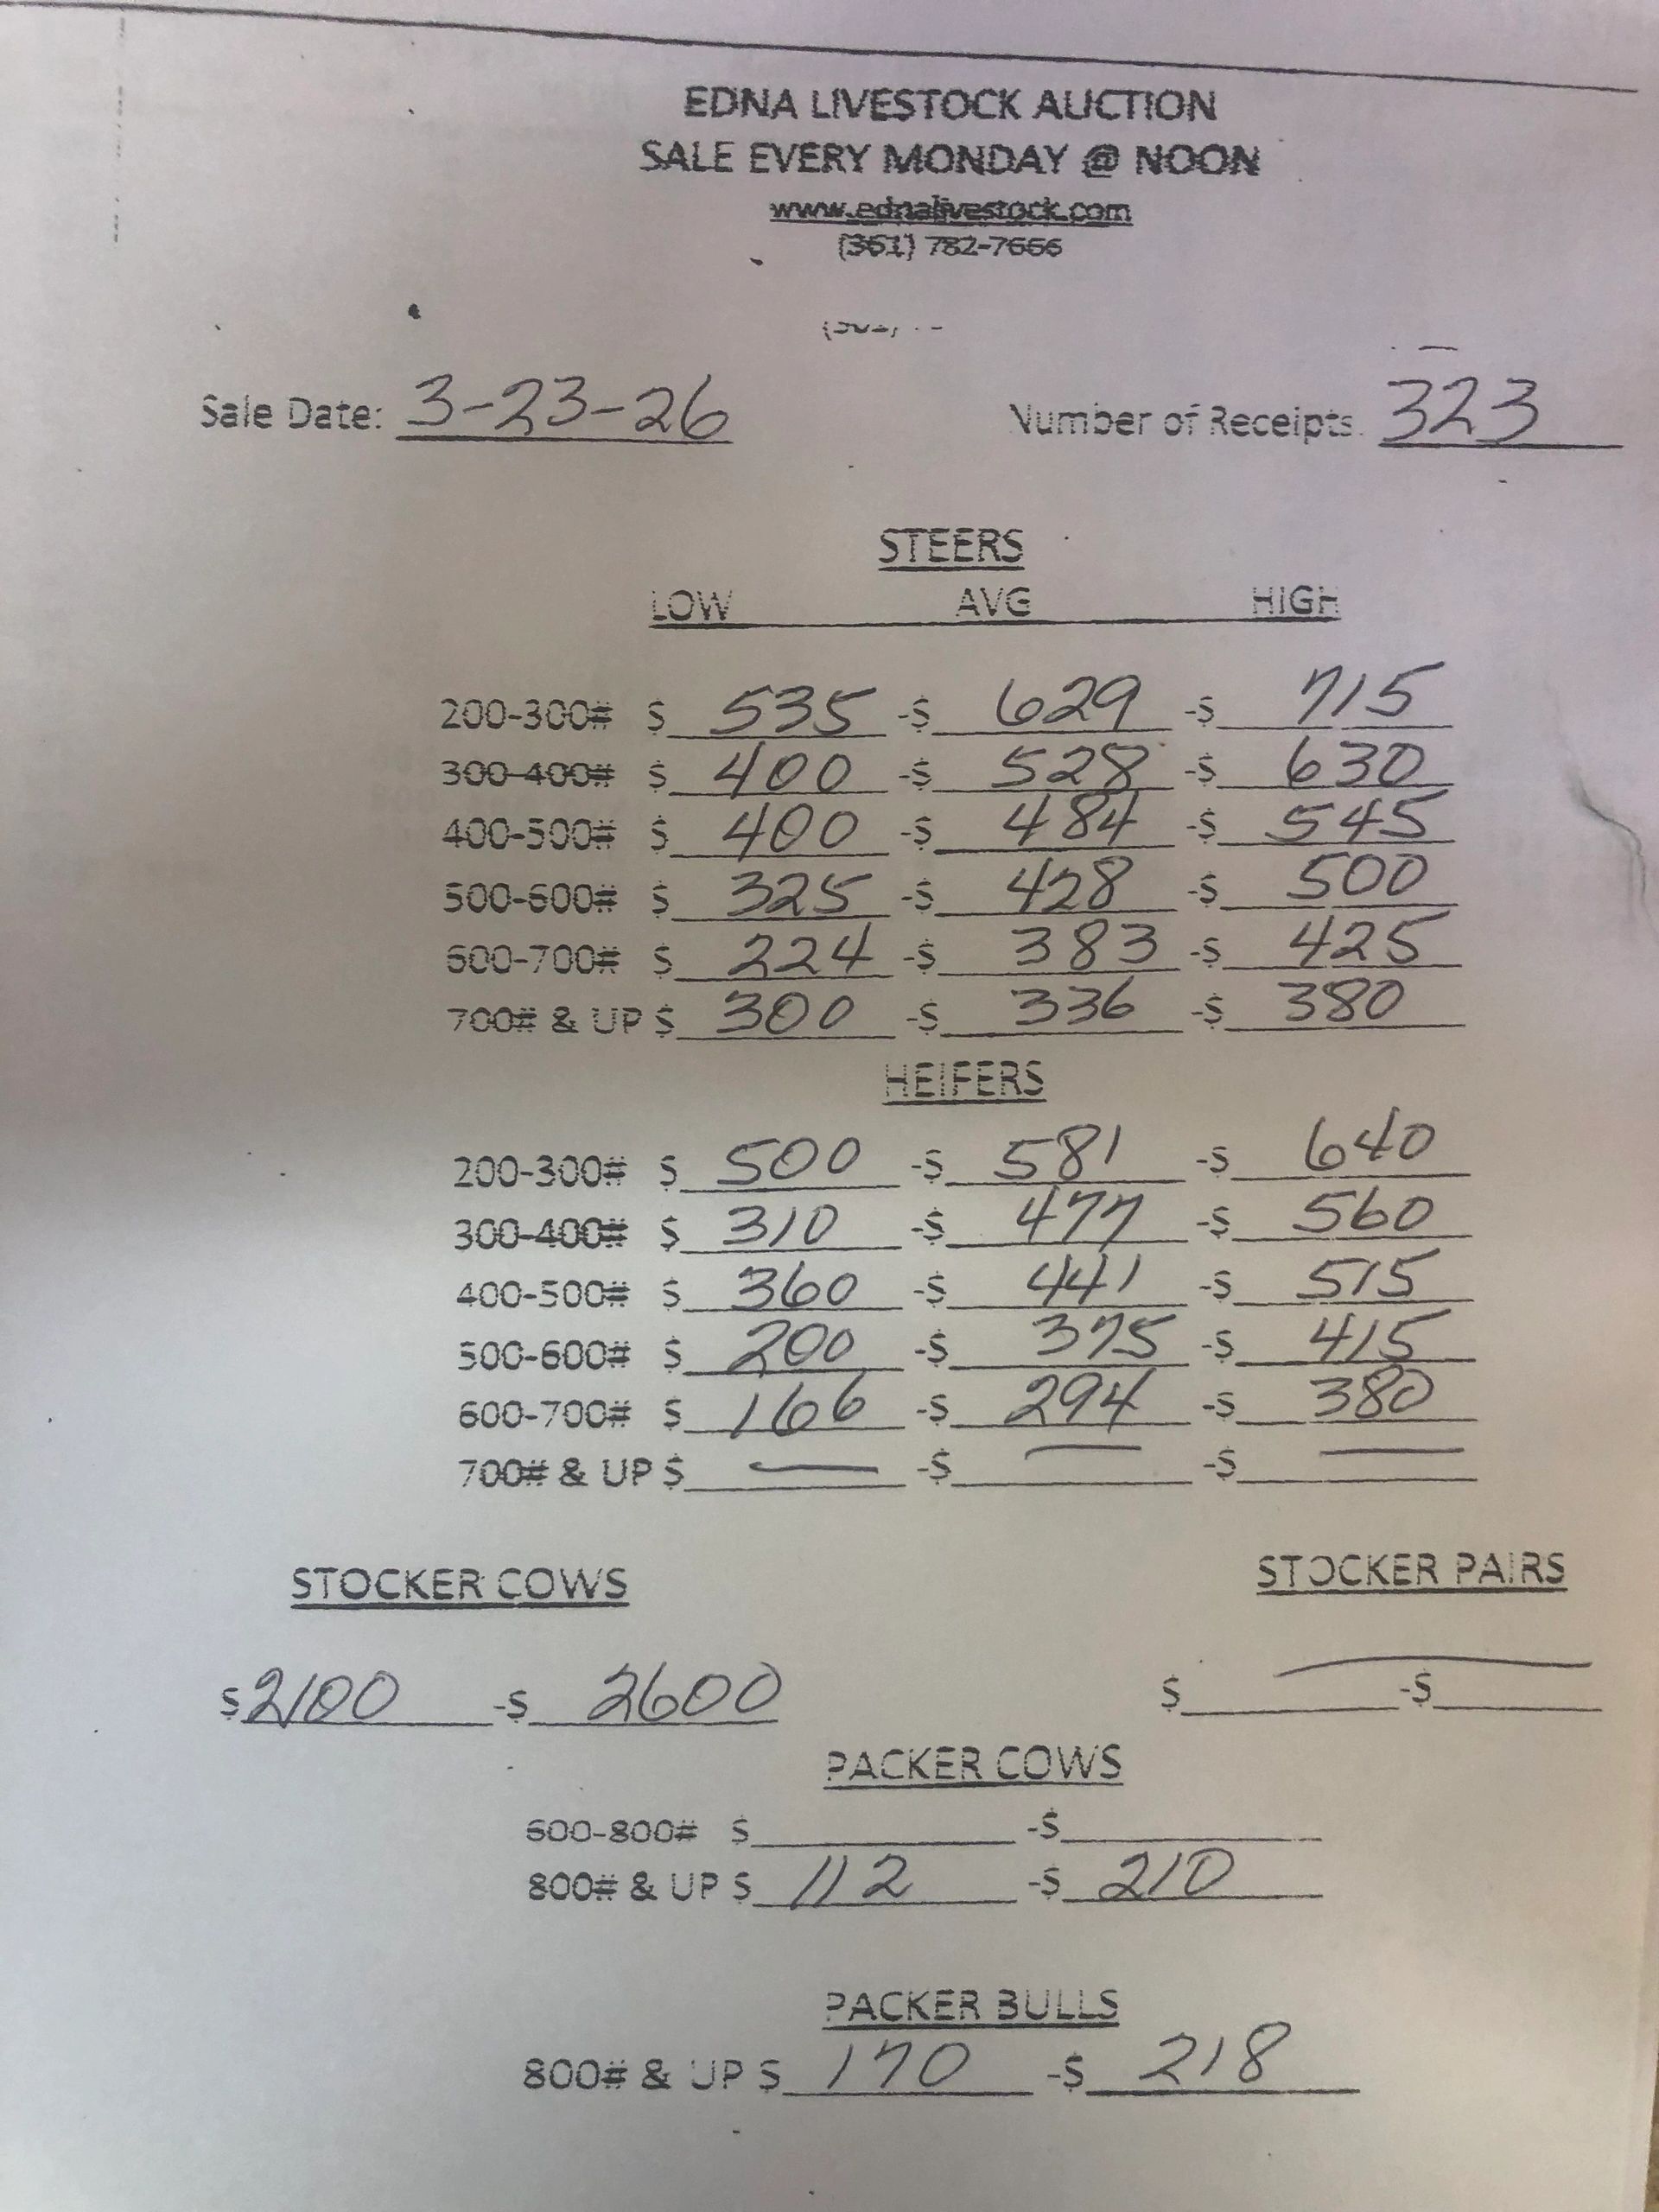 EDNA LIVESTOCK AUCTION
SALE EVERY MONDAY @ NOON
www.ednalivestock.com
(361) 782-7666
Sale Date: 3-23-26 Number of Receipts 323
STEERS
LOW AVG HIGH
200-300# $ 535 -$ 629 -$ 715
300-400# $ 400 -$ 528 -$ 630
400-500# $ 400 -$ 484 -$ 545
500-600# $ 325 -$ 428 -$ 500
600-700# $ 224 -$ 383 -$ 425
700# & UP $ 300 -$ 336 -$ 380
HEIFERS
200-300# $ 500 -$ 581 -$ 640
300-400# $ 310 -$ 477 -$ 560
400-500# $ 360 -$ 441 -$ 515
500-600# $ 200 -$ 375 -$ 415
600-700# $ 166 -$ 294 -$ 380
700# & UP $ — -$ — -$ —
STOCKER COWS STOCKER PAIRS
$ 2100 -$ 2600 $ — -$
PACKER COWS
600-800# $ -$
800# & UP $ 112 -$ 210
PACKER BULLS
800# & UP $ 170 -$ 218